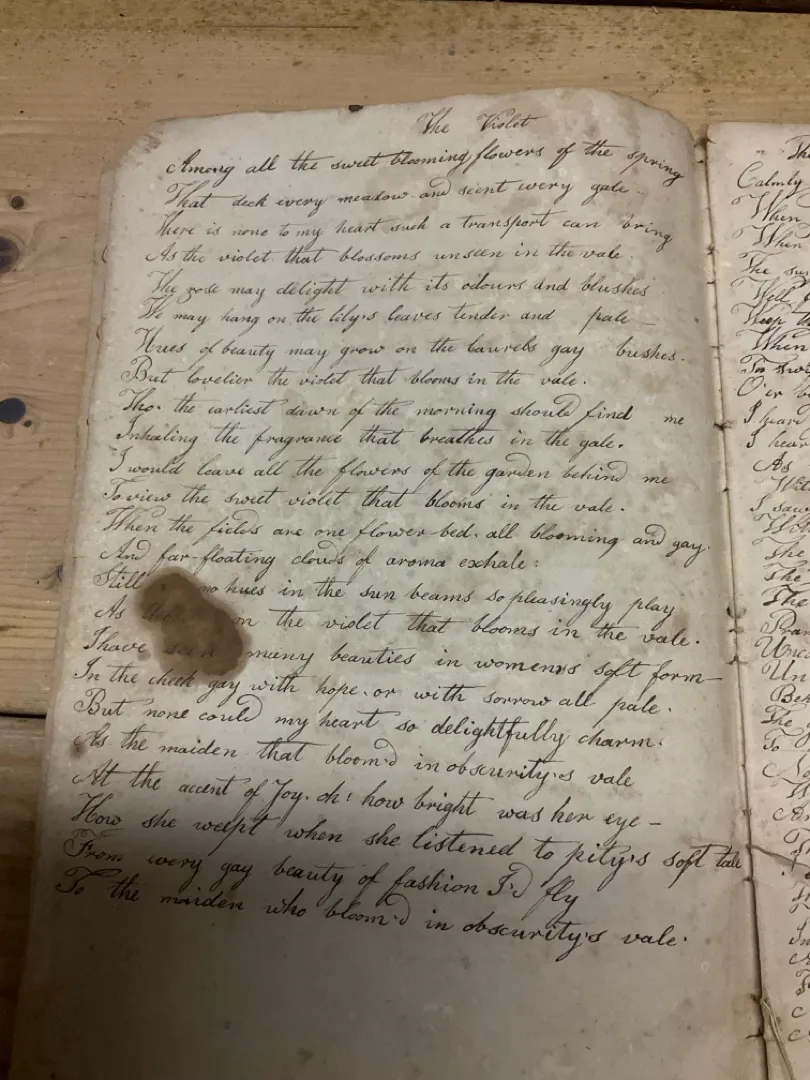 The Violet
Among all the sweet blooming flowers of the spring
That deck every meadow and scent every gale -
There is none to my heart such a transport can bring
As the violet that blossoms unseen in the vale.
The rose may delight with its odours and blushes
We may hang on the lily's leaves tender and pale -
Hues of beauty may grow on the laurels gay bushes.
But lovelier the violet that blooms in the vale.
Tho' the earliest dawn of the morning should find me
Inhaling the fragrance that breathes in the gale.
I would leave all the flowers of the garden behind me
To view the sweet violet that blooms in the vale.
When the fields are one flower-bed. all blooming and gay.
And far-floating clouds of aroma exhale:
Still no hues in the sun beams so pleasingly play
As on the violet that blooms in the vale.
I have seen many beauties in women's soft form -
In the cheek gay with hope. or with sorrow all pale.
But none could my heart so delightfully charm.
As the maiden that bloom'd in obscurity's vale
At the accent of Joy. oh! how bright was her eye -
How she weept when she listened to pity's soft tale
From every gay beauty of fashion I'd fly
To the maiden who bloom'd in obscurity's vale.
Calmly
When
When
The sun
Well
Weep
When
O'er
I hear
I hear
As
I saw
The
The
The
Un
The
To